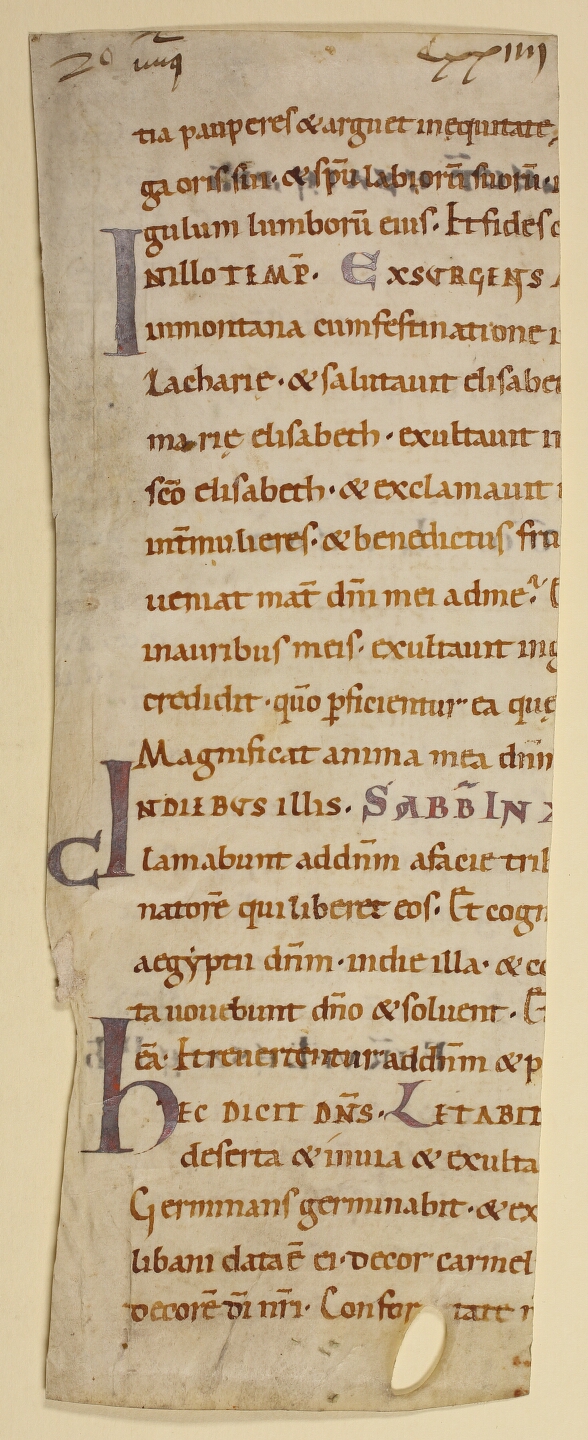 tia pauperes & arguet inequitate
ga oris sui· & sp̄u labiorū suorū·
gulum lumborū eius· Et fides c
IN ILLO TEMP̄· EXSURGENS
inmontana cumfestinatione i
Zacharie· & salutauit elisabe
marię elisabeth· exultauit i
sc̄o elisabeth· & exclamauit
int̄ mulieres· & benedictus fru
ueniat mat̄ dn̄i mei adme?
inauribus meis· exultauit ing
credidit· quō pficientur ea quę
Magnificat anima mea dn̄m
INDIEBUS illis· SABB̄ IN
Clamabunt addn̄m afacie trib
natorē qui liberet eos· Et cogn
aegyptii dn̄m· indie illa· & co
ta uouebunt dn̄o & soluent· E
eā· Et reuertentur addn̄m & p
hEC DICIT DN̄S· LETABIT
deserta & inuia & exulta
Germinans germinabit· & ex
libani data ē ei· decor carmel
decorē dī nr̄i· Confortate